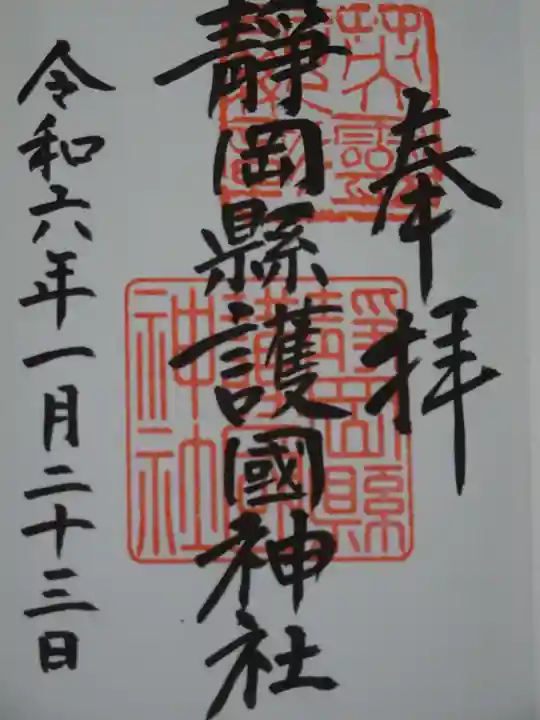 奉拝
靜岡縣護國神社
令和六年一月二十三日
靜岡縣護國神社